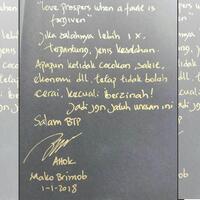 "love prospers when a fault is
forgiven"
jika salahnya lebih 1 x.
tergantung, jenis kesalahan.
Apapun ketidak cocokan, sakit,
ekonomi dll, tetap tidak boleh
cerai, kecuali berzinah!
Jadi jgn jatuh
Salam BTP
AHOK
Mako Brimob
1-1-2018